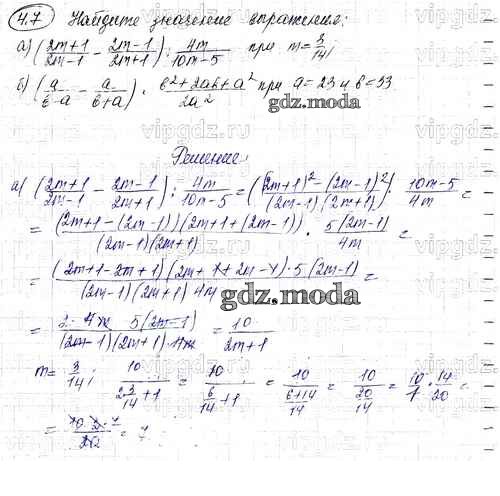 4.7 Найдите значение выражения:
а) ( 2m+1 / 2m-1 - 2m-1 / 2m+1 ) : 4m / 10m-5 при m = 3/14;
б) ( a / b-a - a / b+a ) · b²+2ab+a² / 2a² при a = 23 и b = 33.
gdz.moda
Решение
а) ( 2m+1 / 2m-1 - 2m-1 / 2m+1 ) : 4m / 10m-5 = ( (2m+1)² - (2m-1)² / (2m-1)(2m+1) ) · 10m-5 / 4m =
= (2m+1-(2m-1))(2m+1+(2m-1)) / (2m-1)(2m+1) · 5(2m-1) / 4m =
= (2m+1-2m+1)(2m+1+2m-1)·5(2m-1) / (2m-1)(2m+1) 4m =
gdz.moda
= 2·4m 5(2m-1) / (2m-1)(2m+1)·4m = 10 / 2m+1
m = 3/14; 10 / 2 3/14 +1 = 10 / 6/14 +1 = 10 / 6+14/14 = 10 / 20/14 = 10/1 · 14/20 =
= 10·2·7 / 20 = 7